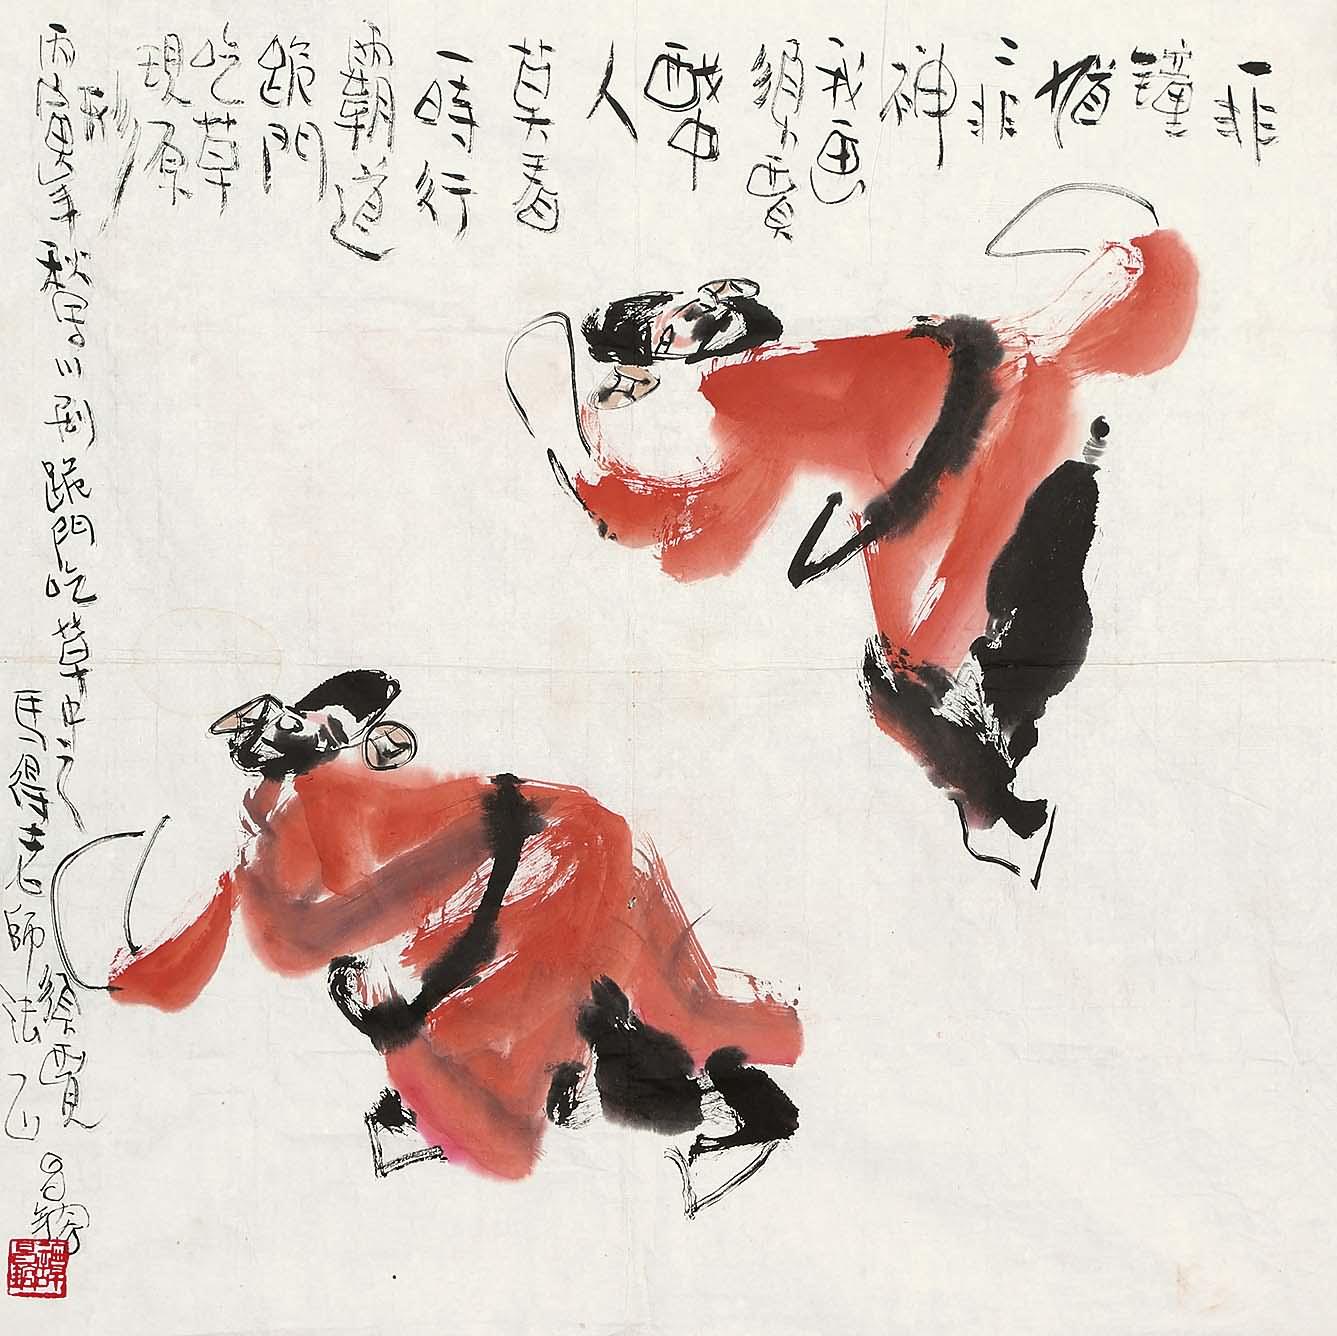 一非
鍾
馗
二非
神
我画
須賈
醜中
人
莫看
一時行
霸道
跪門
吃草
現原
形
丙寅年秋写川剧跪門吃草中之
須賈
馬得老師法正
昌镐